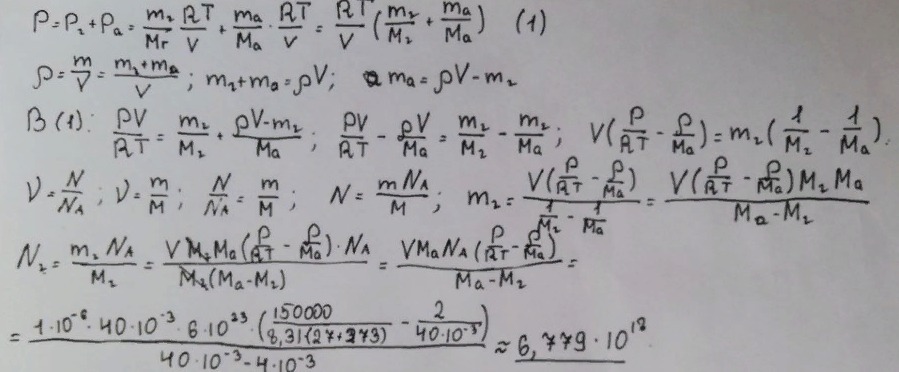 P = P₂ + Pₐ = m₂/Mг RT/V + mₐ/Mₐ · RT/V = RT/V (m₂/M₂ + mₐ/Mₐ) (1)
ρ = m/V = (m₂+mₐ)/V ; m₂+mₐ = ρV; mₐ = ρV - m₂
В (1): PV/RT = m₂/M₂ + (ρV-m₂)/Mₐ ; PV/RT - ρV/Mₐ = m₂/M₂ - m₂/Mₐ ; V(P/RT - ρ/Mₐ) = m₂(1/M₂ - 1/Mₐ).
ν = N/Nᴀ ; ν = m/M ; N/Nᴀ = m/M ; N = mNᴀ/M ; m₂ = V(P/RT - ρ/Mₐ)/(1/M₂ - 1/Mₐ) = V(P/RT - ρ/Mₐ)M₂Mₐ/(Mₐ-M₂)
N₂ = m₂Nᴀ/M₂ = VM₂Mₐ(P/RT - ρ/Mₐ)·Nᴀ/(M₂(Mₐ-M₂)) = VMₐNᴀ(P/RT - ρ/Mₐ)/(Mₐ-M₂) =
= 1·10⁻⁶·40·10⁻³·6·10²³·(150000/(8,31(27+273)) - 2/(40·10⁻³))/(40·10⁻³-4·10⁻³) ≈ 6,779·10¹⁸